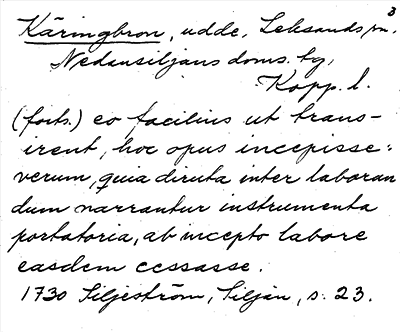 3
Käringbron, udde, Leksands sn.
Nedansiljans doms. by,
Kopp. l.
(forts.) eo facilius ut trans-
irent, hoc opus incepisse:
verum, quia diruta inter laboran
dum narrantur instrumenta
portatoria, ab incepto labore
easdem cessasse.
1730 Siljeström, Siljan, s. 23.